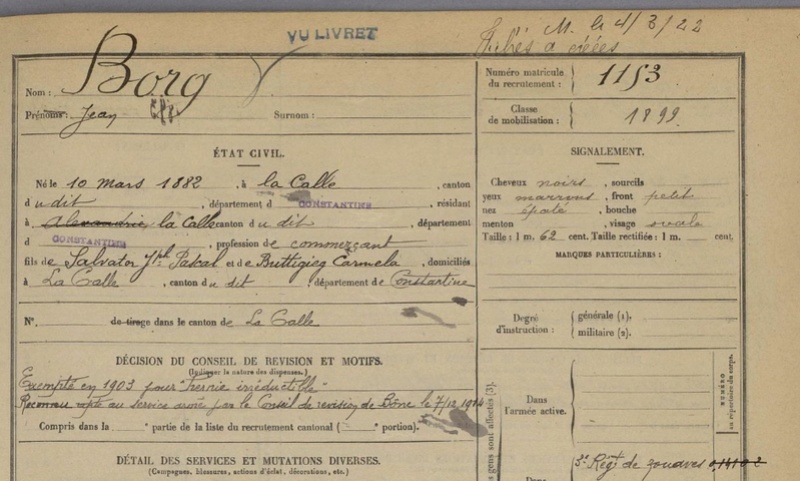 VU LIVRET
M. le 4/3/22
Nom : Borg
Prénoms : Jean
Surnom :
Numéro matricule du recrutement : 1153
Classe de mobilisation : 1899
ÉTAT CIVIL.
Né le 10 mars 1882, à la Calle, canton
d u dit, département d CONSTANTINE, résidant
à Alexandrie la Calle canton d u dit, département
d CONSTANTINE, profession de commerçant
fils de Salvator Jph Pascal et de Buttigieg Carmela, domiciliés
à La Calle, canton du dit, département de Constantine
N° de tirage dans le canton de La Calle
SIGNALEMENT.
Cheveux noirs, sourcils
yeux marrons, front petit
nez épaté, bouche
menton, visage ovale
Taille : 1 m. 62 cent. Taille rectifiée : 1 m. cent.
MARQUES PARTICULIÈRES :
Degré d'instruction : générale (1).
militaire (2).
DÉCISION DU CONSEIL DE REVISION ET MOTIFS.
(Indiquer la nature des dispenses.)
Exempté en 1903 pour "hernie irréductible"
Reconnu apte au service armé par le Conseil de revision de Bône le 7/12 1914
Compris dans la e partie de la liste du recrutement cantonal ( portion).
DÉTAIL DES SERVICES ET MUTATIONS DIVERSES.
(Campagnes, blessures, actions d'éclat, décorations, etc.)
gens sont affectés (3).
Dans l'armée active.
NUMÉRO
au répertoire du corps.
3e Régt de zouaves
Dans